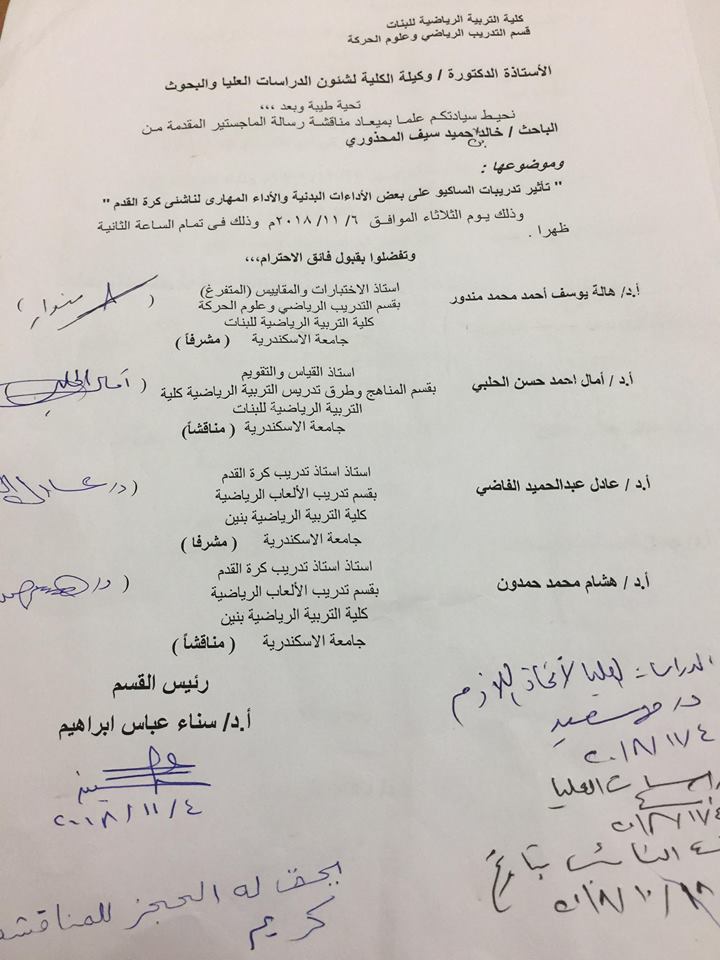 كلية التربية الرياضية للبنات
قسم التدريب الرياضي وعلوم الحركة
الأستاذة الدكتورة / وكيلة الكلية لشئون الدراسات العليا والبحوث
تحية طيبة وبعد ،،،
نحيط سيادتكم علما بميعاد مناقشة رسالة الماجستير المقدمة من
الباحث / خالد حميد سيف المحذوري
وموضوعها :
" تأثير تدريبات الساكيو على بعض الأداءات البدنية والأداء المهارى لناشئى كرة القدم "
وذلك يوم الثلاثاء الموافق ٦ /١١ /٢٠١٨م وذلك فى تمام الساعة الثانية
ظهرا .
وتفضلوا بقبول فائق الاحترام،،،
أ.د/ هالة يوسف أحمد محمد مندور
استاذ الاختبارات والمقاييس (المتفرغ)
بقسم التدريب الرياضي وعلوم الحركة
كلية التربية الرياضية للبنات
جامعة الاسكندرية ( مشرفاً )
( مندور )
أ.د / أمال احمد حسن الحلبي
استاذ القياس والتقويم
بقسم المناهج وطرق تدريس التربية الرياضية كلية
التربية الرياضية للبنات
جامعة الاسكندرية ( مناقشاً )
( أمال الحلبي
أ.د / عادل عبدالحميد الفاضي
استاذ استاذ تدريب كرة القدم
بقسم تدريب الألعاب الرياضية
كلية التربية الرياضية بنين
جامعة الاسكندرية ( مشرفا )
( د/ عادل
أ.د / هشام محمد حمدون
استاذ استاذ تدريب كرة القدم
بقسم تدريب الألعاب الرياضية
كلية التربية الرياضية بنين
جامعة الاسكندرية ( مناقشاً )
( د/
رئيس القسم
أ.د/ سناء عباس ابراهيم
٢٠١٨/١١/٤
الدراسات العليا لأتخاذ اللازم
٢٠١٨/١١/٤
العليا
٢٠١٨/١١/٤
بتاريخ
٢٠١٨/١٠/
يحق له الحجز للمناقشة
كريم